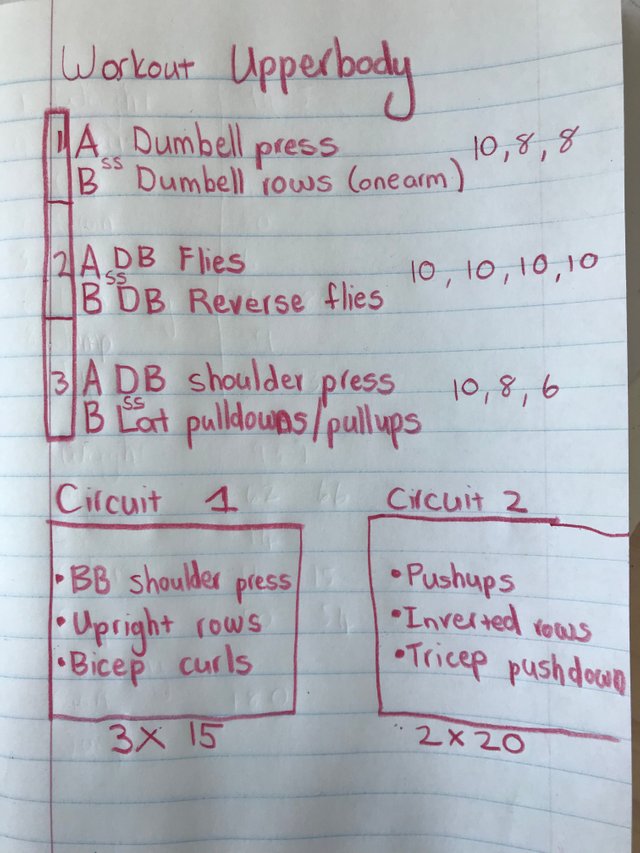 Workout Upperbody
1 A Dumbell press 10, 8, 8
ss
B Dumbell rows (onearm)
2 A DB Flies 10, 10, 10, 10
ss
B DB Reverse flies
3 A DB shoulder press 10, 8, 6
ss
B Lat pulldowns/pullups
Circuit 1
• BB shoulder press
• Upright rows
• Bicep curls
3 X 15
Circuit 2
• Pushups
• Inverted rows
• Tricep pushdown
2 x 20